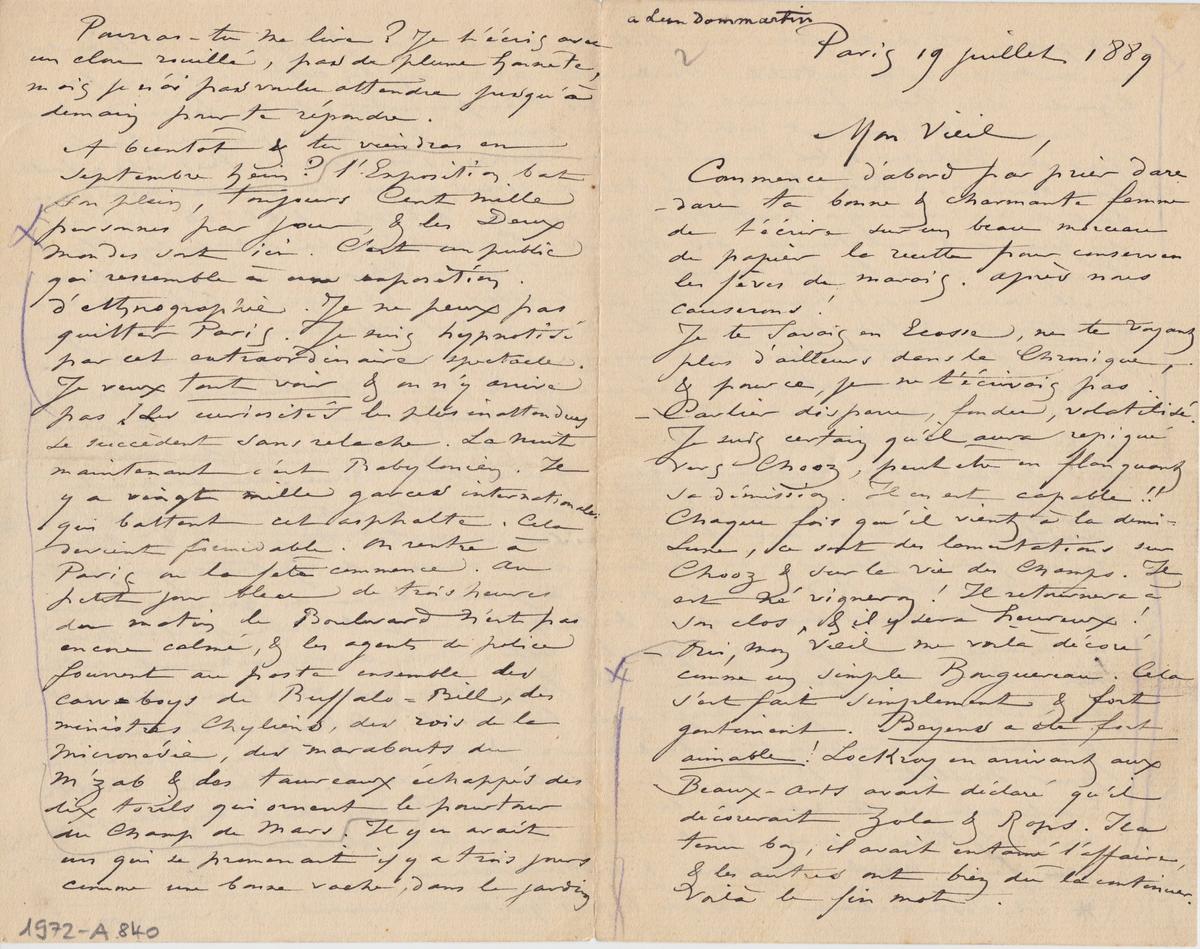 a Leon Dommartin
2
Paris 19 juillet 1889
Mon Vieil,
Commence d'abord par prier dare
-dare ta bonne & charmante femme
de t'écrire sur un beau morceau
de papier la recette pour conserver
les fèves de marais. après nous
causerons!
Je te savais en Ecosse, ne te voyant
plus d'ailleurs dans la Chronique,
& pour ce, je ne t'écrivais pas.
– Carlier disparu, fondu, volatilisé.
Je suis certain qu'il aura repiqué
vers Chooz, peut etre en flanquant
sa démission. Il en est capable!!
Chaque fois qu'il vient à la demi-
Lune, ce sont des lamentations sur
Chooz & sur la vie des Champs. Il
est né vigneron! Il retournera à
son clos, & il y sera heureux!
– Oui, mon vieil me voilà décoré
comme un simple Bouguereau. Cela
s'est fait simplement & fort
gentiment. Beyens a été fort
aimable! Lockroy en arrivant aux
Beaux-arts avait déclaré qu'il
décorerait Zola & Rops. Il a
tenu bon; il avait entamé l'affaire,
& les autres ont bien dû la continuer.
Voilà le fin mot.
Pourras-tu me lire? Je t'écris avec
un clou rouillé, pas de plume honnête,
mais je n'ai pas voulu attendre jusqu'à
demain pour te répondre.
A bientôt & tu viendras en
septembre hein? l'Exposition bat
son plein, toujours Cent mille
personnes par jour, & les Deux
mondes sont ici. C'est un public
qui ressemble à une exposition
d'ethnographie. Je ne peux pas
quitter Paris. Je suis hypnotisé
par cet extraordinaire spectacle.
Je veux tout voir & on n'y arrive
pas! Les curiosités les plus inattendues
se succèdent sans relache. La nuit
maintenant c'est Babylonien. Il
y a vingt mille garces internationales
qui battent cet asphalte. Cela
devient formidable. On rentre à
Paris où la fête commence. Au
petit jour bleu de trois heures
du matin le Boulevard n'est pas
encore calmé, & les agents de police
fourrent au poste ensemble des
cow-boys de Buffalo-Bill, des
ministres Chyliens, des rois de la
Micronésie, des marabouts du
M'zab & des taureaux échappés des
dix torils qui ornent le pourtour
du Champ de Mars. Il y en avait
un qui se promenait il y a trois jours
comme une bonne vache, dans le jardin
1972-A.840